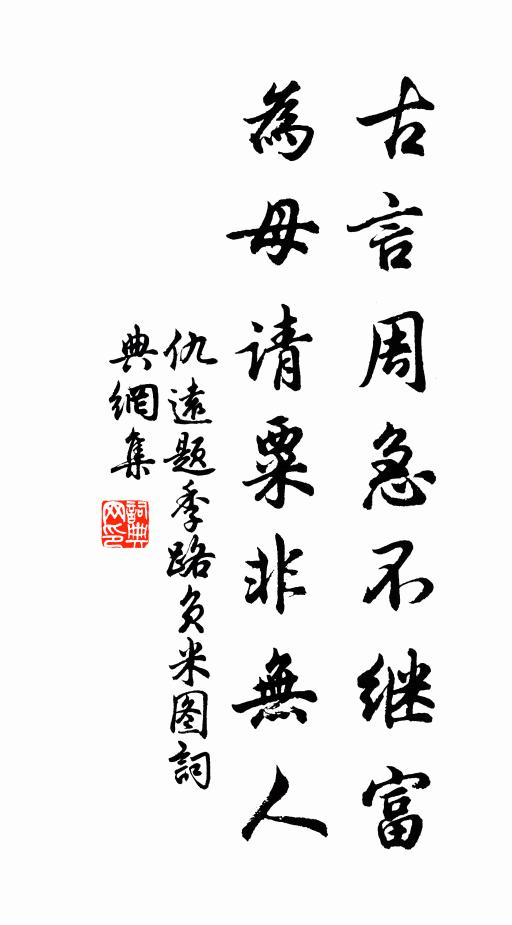 古言周急不继富
為母请粟非無人
仇遠题季路负米图詞
典網集
詞典网印